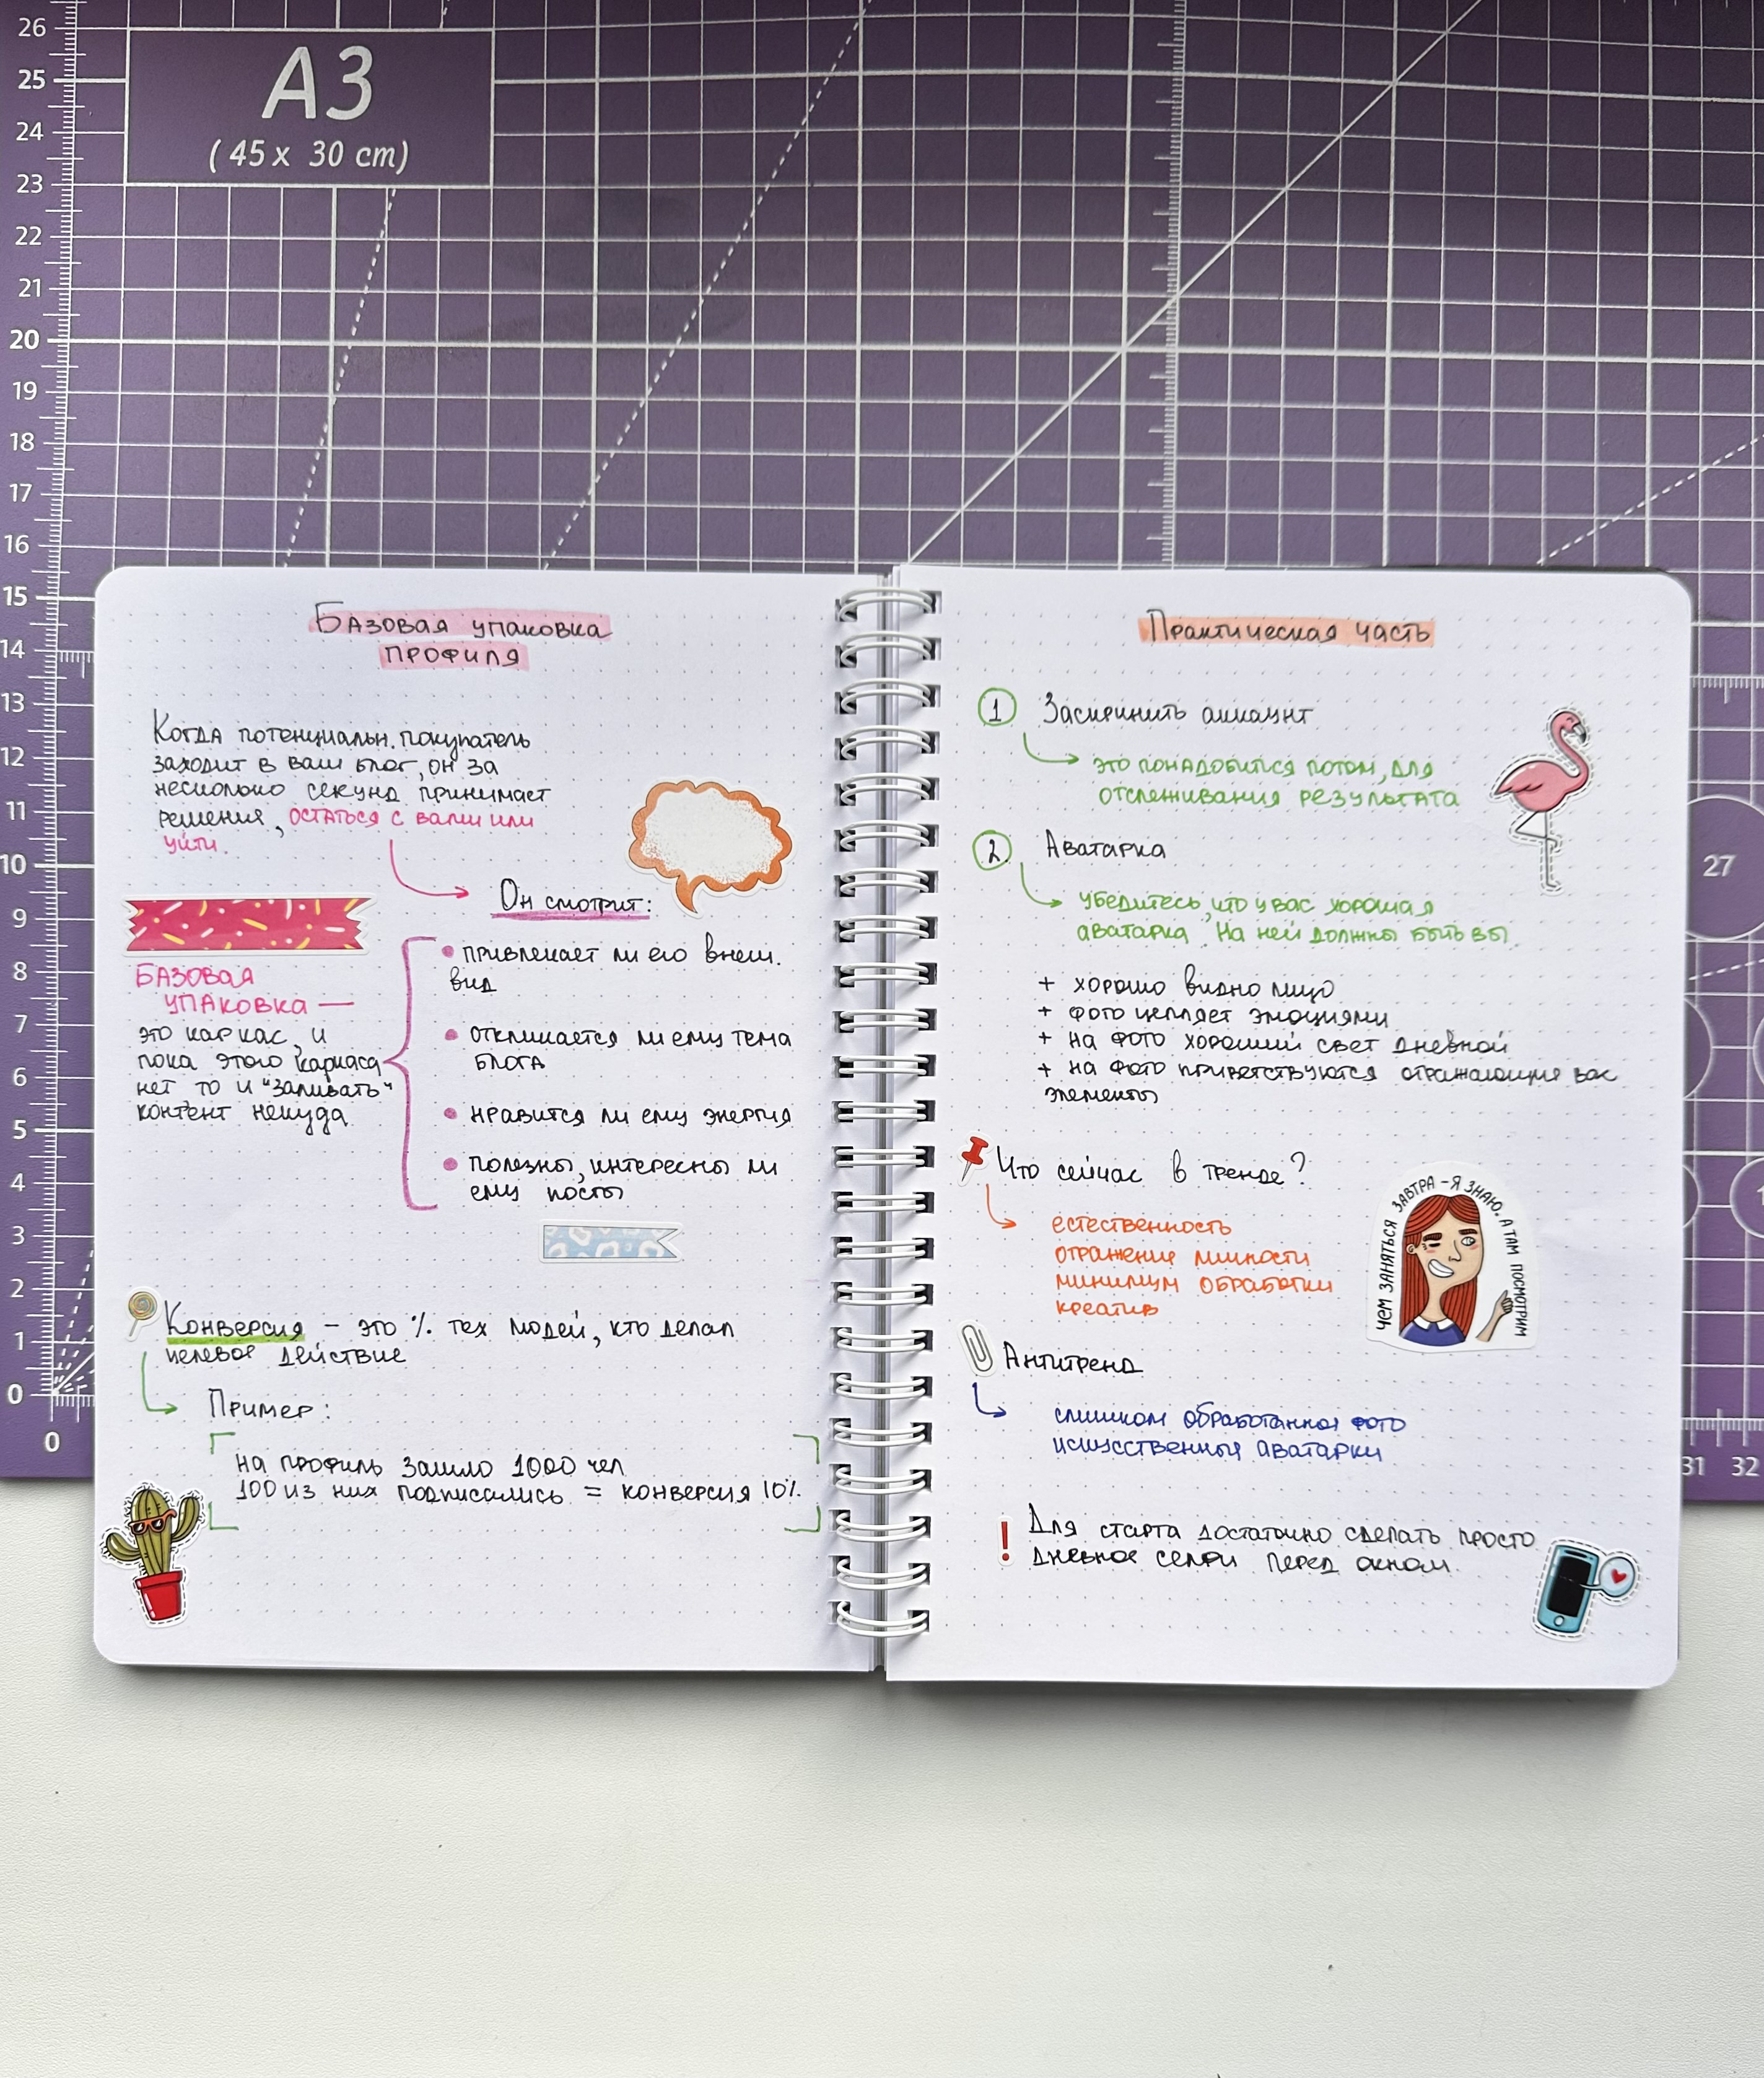 26
25
24
23
22
21
20
19
18
17
16
15
14
13
12
11
10
9
8
7
6
5
4
3
2
1
0
0
A3
(45 x 30 cm)
27
31 32
Базовая упаковка
профиля
Когда потенциальн. покупатель
заходит в ваш блог, он за
несколько секунд принимает
решения, остаться с вами или
уйти.
Он смотрит:
• привлекает ли его внеш.
вид
• откликается ли ему тема
блога
• нравится ли ему энергия
• полезны, интересны ли
ему посты
Базовая
упаковка —
это каркас, и
пока этого каркаса
нет то и "заливать"
контент некуда
Конверсия – это % тех людей, кто делал
целевое действие
Пример:
на профиль зашло 1000 чел
100 из них подписались = конверсия 10%
Практическая часть
1 Заскринить аккаунт
это понадобится потом, для
отслеживания результата
2 Аватарка
убедитесь, что у вас хорошая
аватарка. На ней должны быть вы
+ хорошо видно лицо
+ фото цепляет эмоциями
+ на фото хороший свет дневной
+ на фото приветствуются отражающие вас
элементы
Что сейчас в тренде?
естественность
отражение личности
минимум обработки
креатив
ЧЕМ ЗАНЯТЬСЯ ЗАВТРА – Я ЗНАЮ. А ТАМ ПОСМОТРИМ
Антитренд
слишком обработанное фото
искусственные аватарки
! Для старта достаточно сделать просто
дневное селфи перед окном.